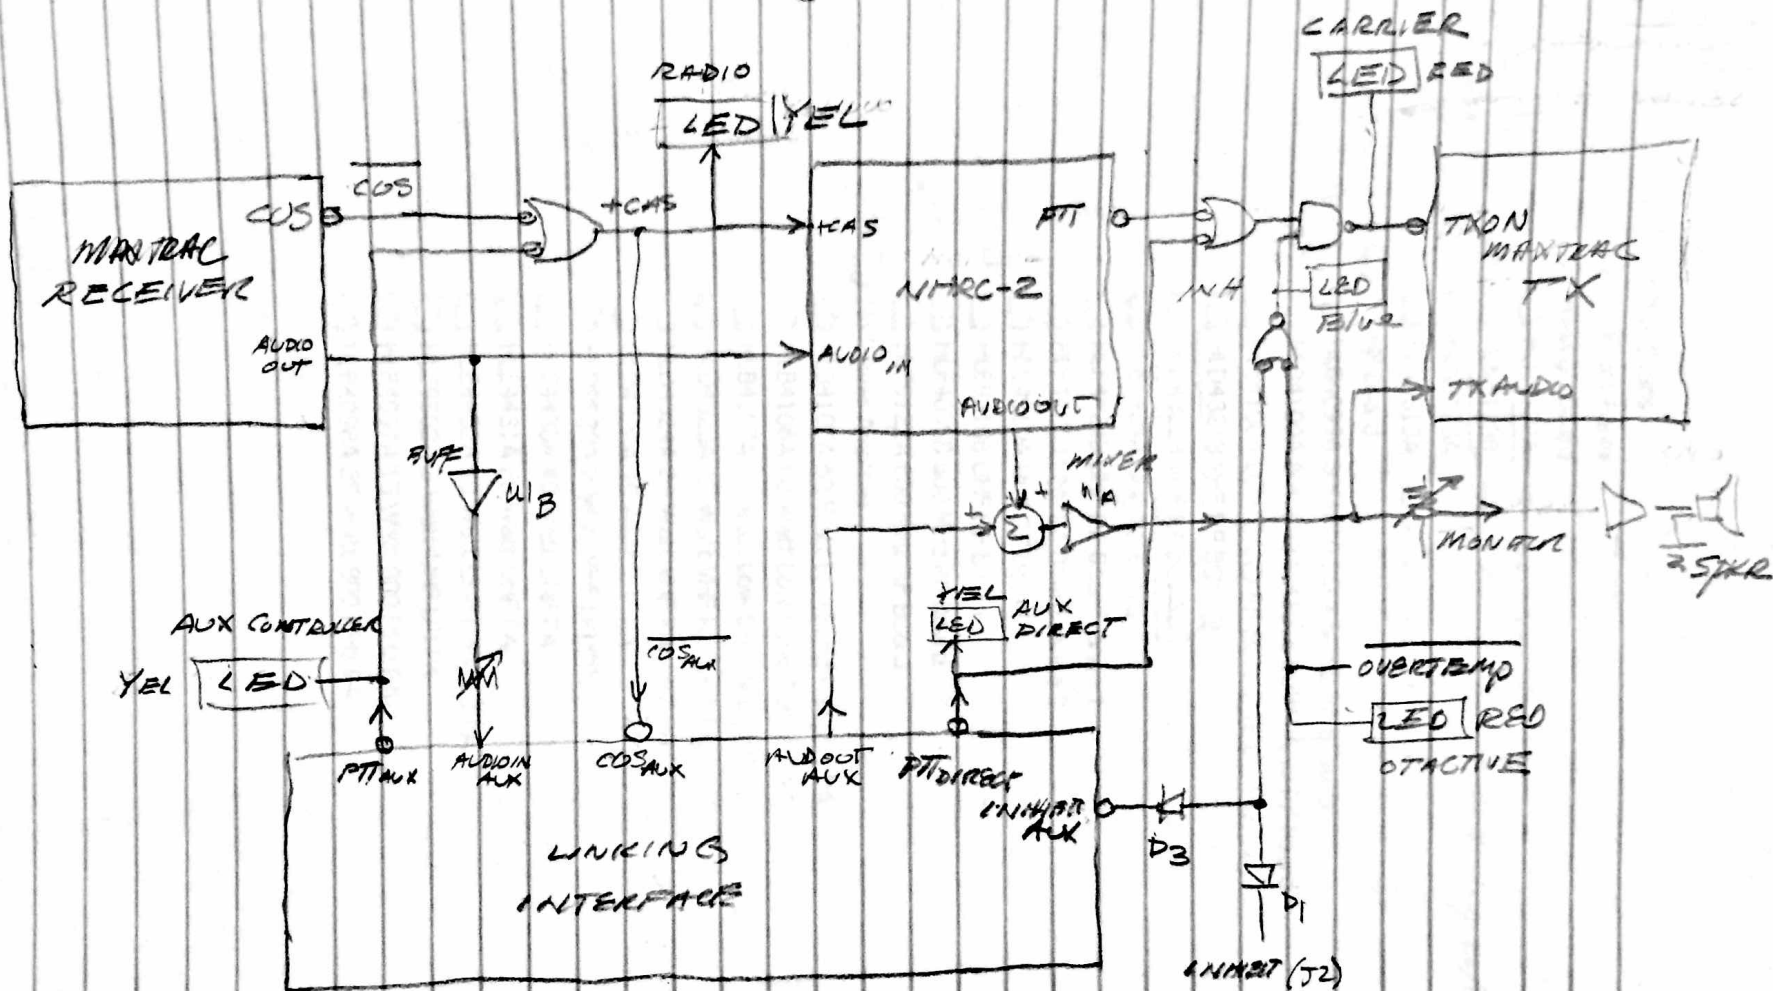 CARRIER
LED RED
RADIO
LED YEL
COS
COS
MAXTRAC
RECEIVER
AUDIO
OUT
+CAS
+CAS
PTT
NHRC-2
AUDIO IN
AUDIO OUT
INH
LED
Blue
TXON
MAXTRAC
TX
TX AUDIO
BUFF
U1B
MIXER
U1A
+
+
Σ
MONITOR
SPKR
YEL
LED
AUX
DIRECT
AUX CONTROLLER
YEL LED
COS AUX
OVERTEMP
LED RED
OT ACTIVE
PTT AUX
AUDIO IN
AUX
COS AUX
AUD OUT
AUX
PTT DIRECT
INHIBIT
AUX
D3
D1
LINKING
INTERFACE
INHIBIT (J2)